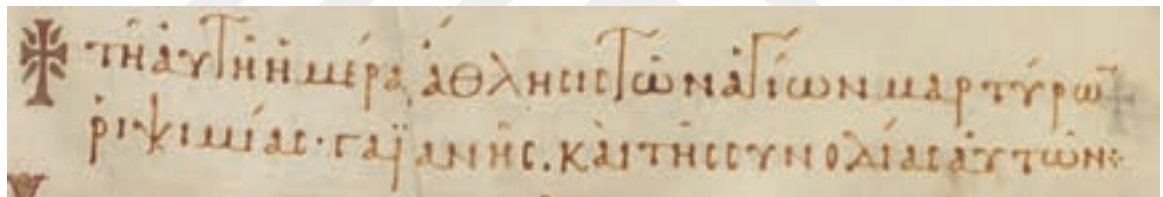 ☩ τῆ ἀυτῆ ἡμέρα, ἄθλησις τῶν ἁγίων μαρτύρω
ῥιψιμίας · γαϊανῆς . καὶ τῆς συνολίας ἀυτῶν ⁘